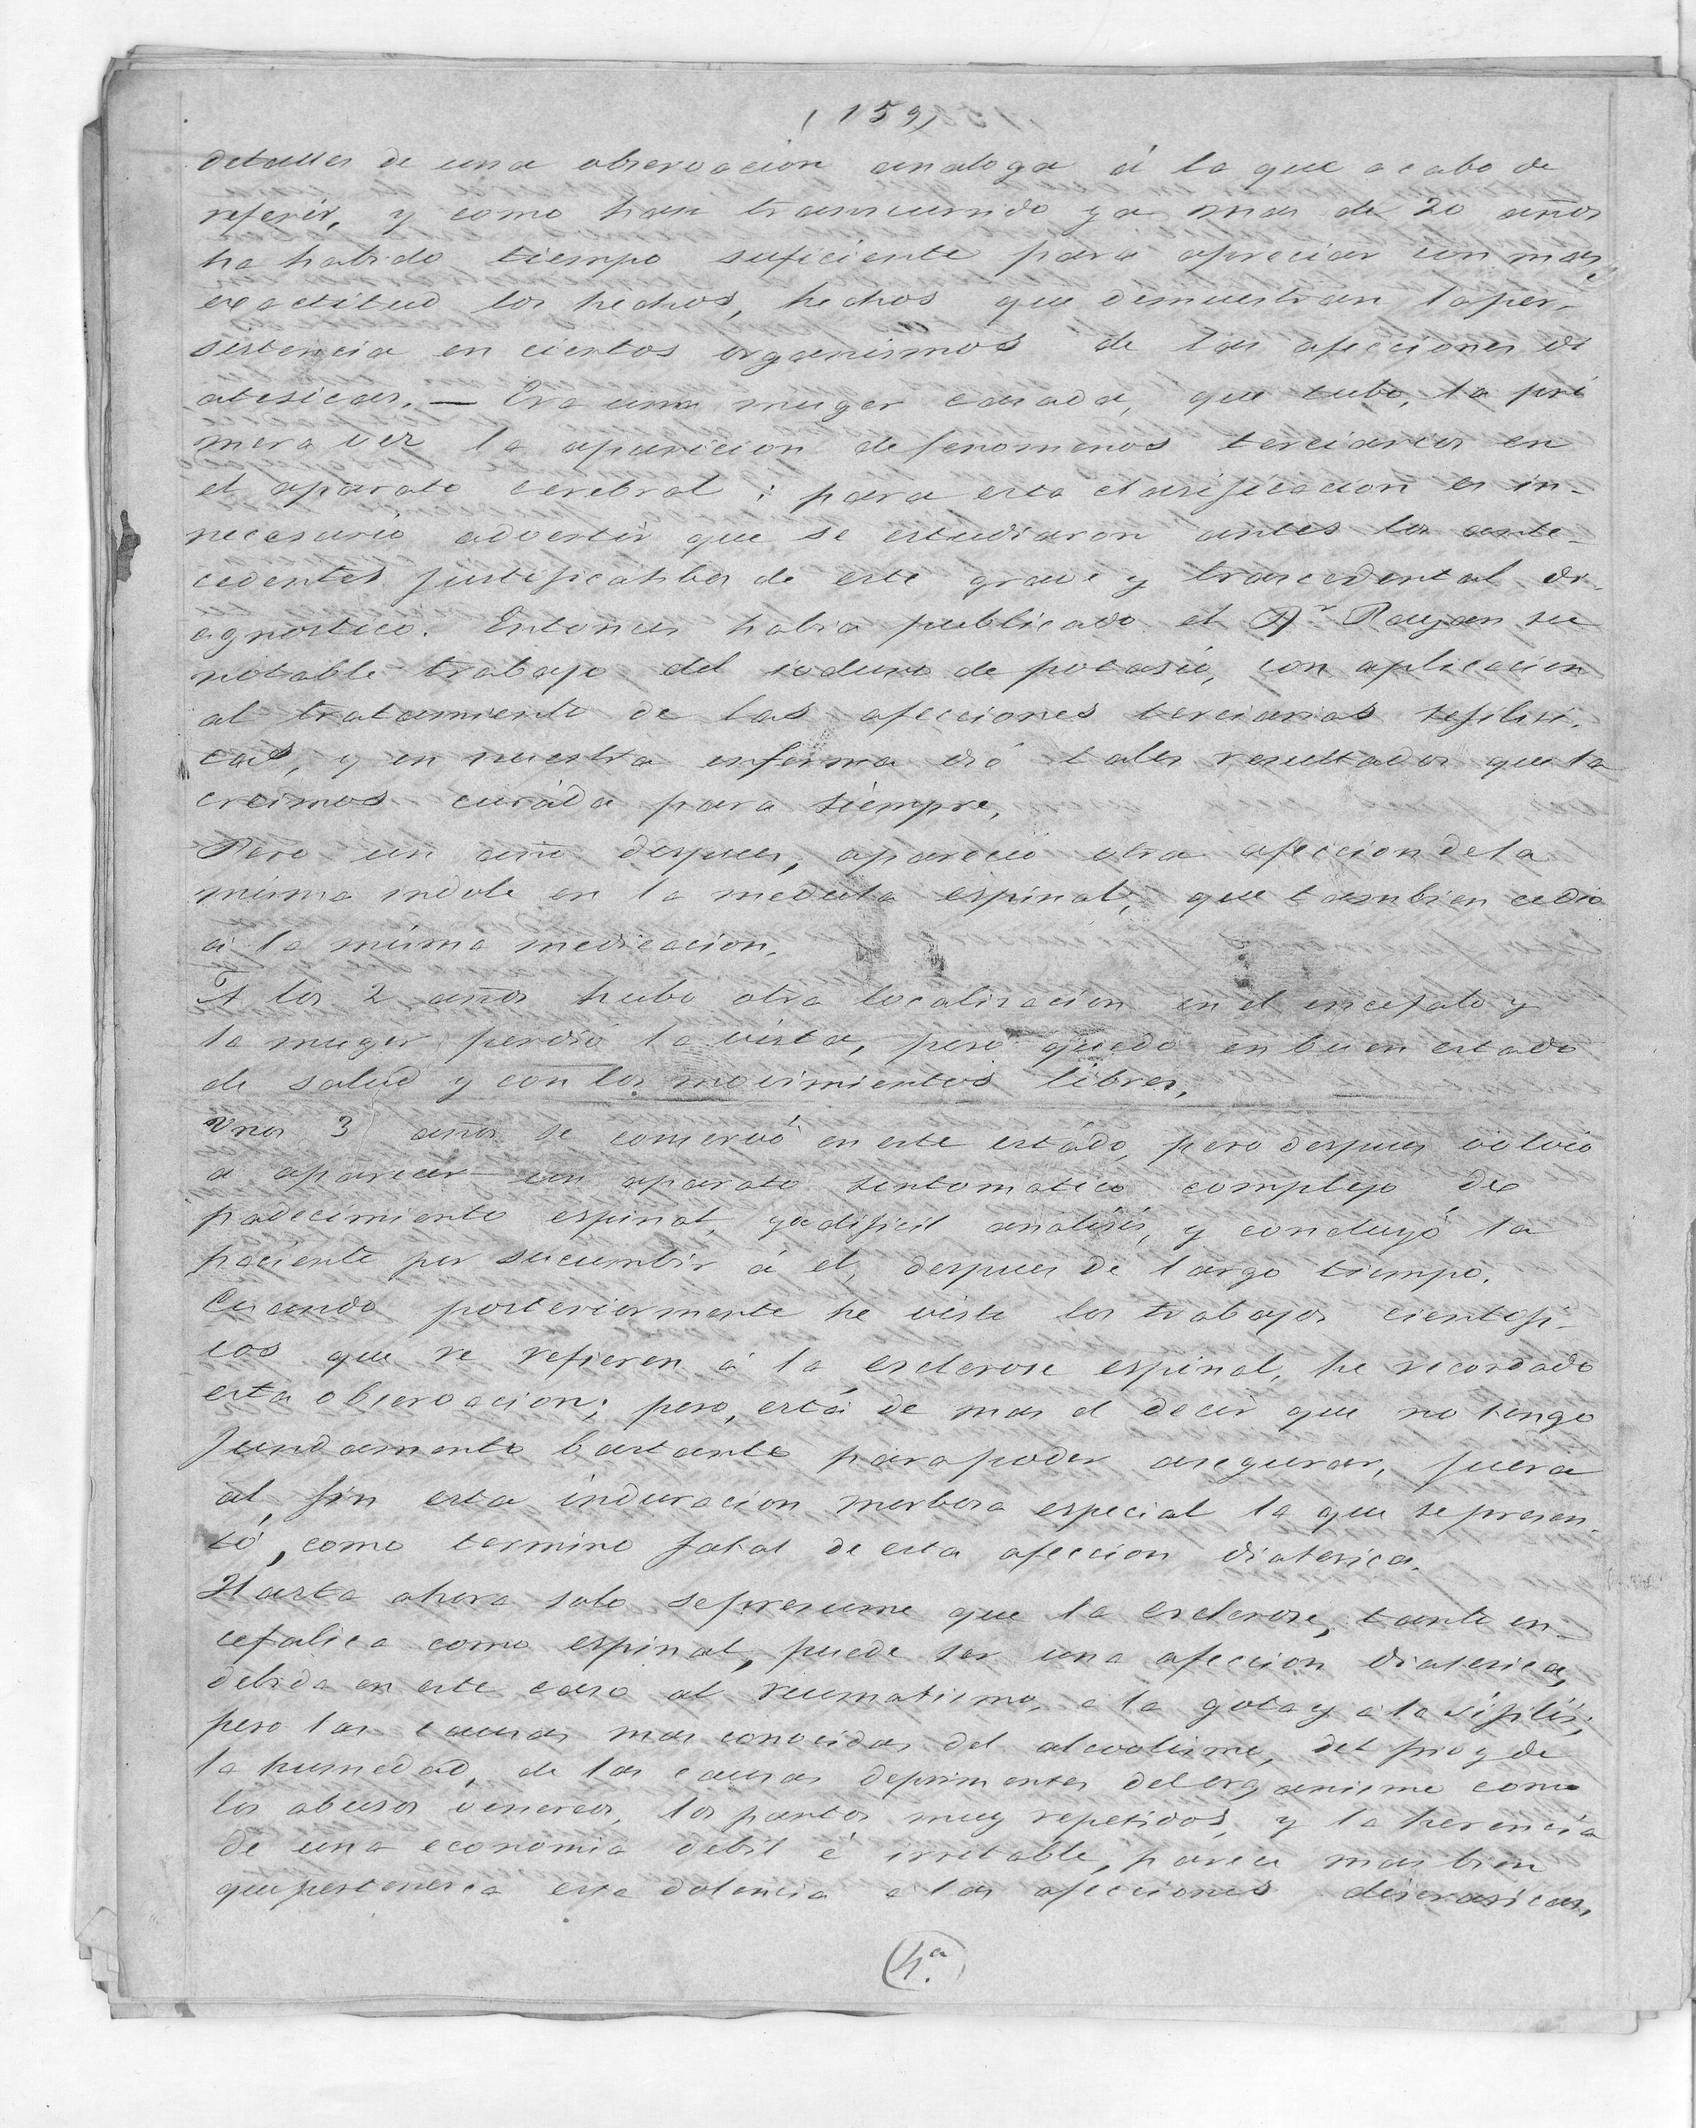 (159)
detalles de una observacion analoga á la que acabo de
referir, y como han transcurrido ya mas de 20 años
ha habido tiempo suficiente para apreciar con mas
exactitud los hechos, hechos que demuestran la per-
sistencia en ciertos organismos de las afecciones di
atesicas. — Era una muger casada, que tubo, la pri
mera vez la aparicion de fenomenos terciarios en
el aparato cerebral; para esta clasificacion es in-
necesario advertir que se estudiaron antes los ante-
cedentes justificatibos de este grave y trascedental di-
agnostico. Entonces habia publicado el Dr. su
notable trabajo del ioduro de potasio, con aplicacion
al tratamiento de las afecciones terciarias sifiliti-
cas, y en nuestra enferma dió tales resultados que la
creimos curada para siempre.
Pero un año despues, apareció otra afeccion de la
misma indole en la medula espinal, que tambien cedio
á la misma medicacion.
A los 2 años hubo otra localizacion en el encefalo y
la muger perdió la vista, pero quedo en buen estado
de salud y con los movimientos libres.
Unos 3 años se conservó en este estado, pero despues volvio
a aparecer un aparato sintomatico complejo de
padecimiento espinal, ya dificil analisis, y concluyó la
paciente por sucumbir á el, despues de largo tiempo.
Cuando posteriormente he visto los trabajos cientifi-
cos que se refieren á la esclerose espinal, he recordado
esta observacion; pero, está de mas el decir que no tengo
fundamento bastante para poder asegurar, fuera
al fin esta induracion morbosa especial la que se presen-
tó, como termino fatal de esta afeccion diatesica.
Hasta ahora solo se presume que la esclerose, tanto en-
cefalica como espinal, puede ser una afeccion diatesica,
debida en este caso al reumatismo, a la gota y a la sifilis;
pero las causas mas conocidas del alcoolismo, del frio y de
la humedad, de las causas deprimentes del organismo como
los abusos venereos, los partos muy repetidos, y la herencia
de una economia debil é irritable, parece mas bien
que pertenesca esta dolencia a las afecciones discrasicas,
4.ª